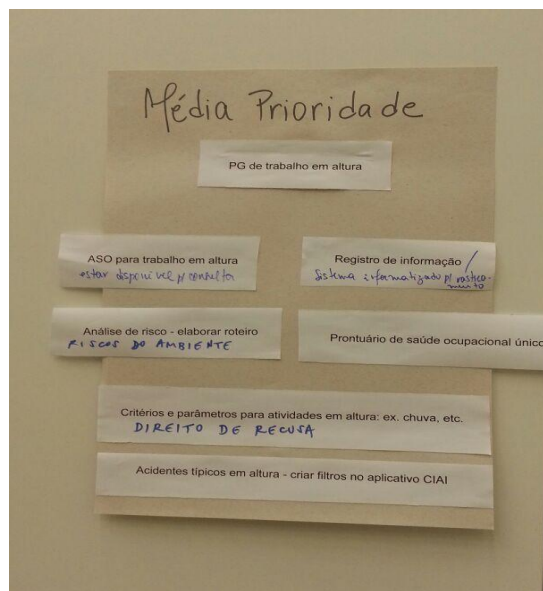 Média Prioridade
PG de trabalho em altura
ASO para trabalho em altura
estar disponível p/ consulta
Registro de informação /
Sistema informatizado p/ rastrea-
mento
Análise de risco - elaborar roteiro
RISCOS DO AMBIENTE
Prontuário de saúde ocupacional único
Critérios e parâmetros para atividades em altura: ex. chuva, etc.
DIREITO DE RECUSA
Acidentes típicos em altura - criar filtros no aplicativo CIAI